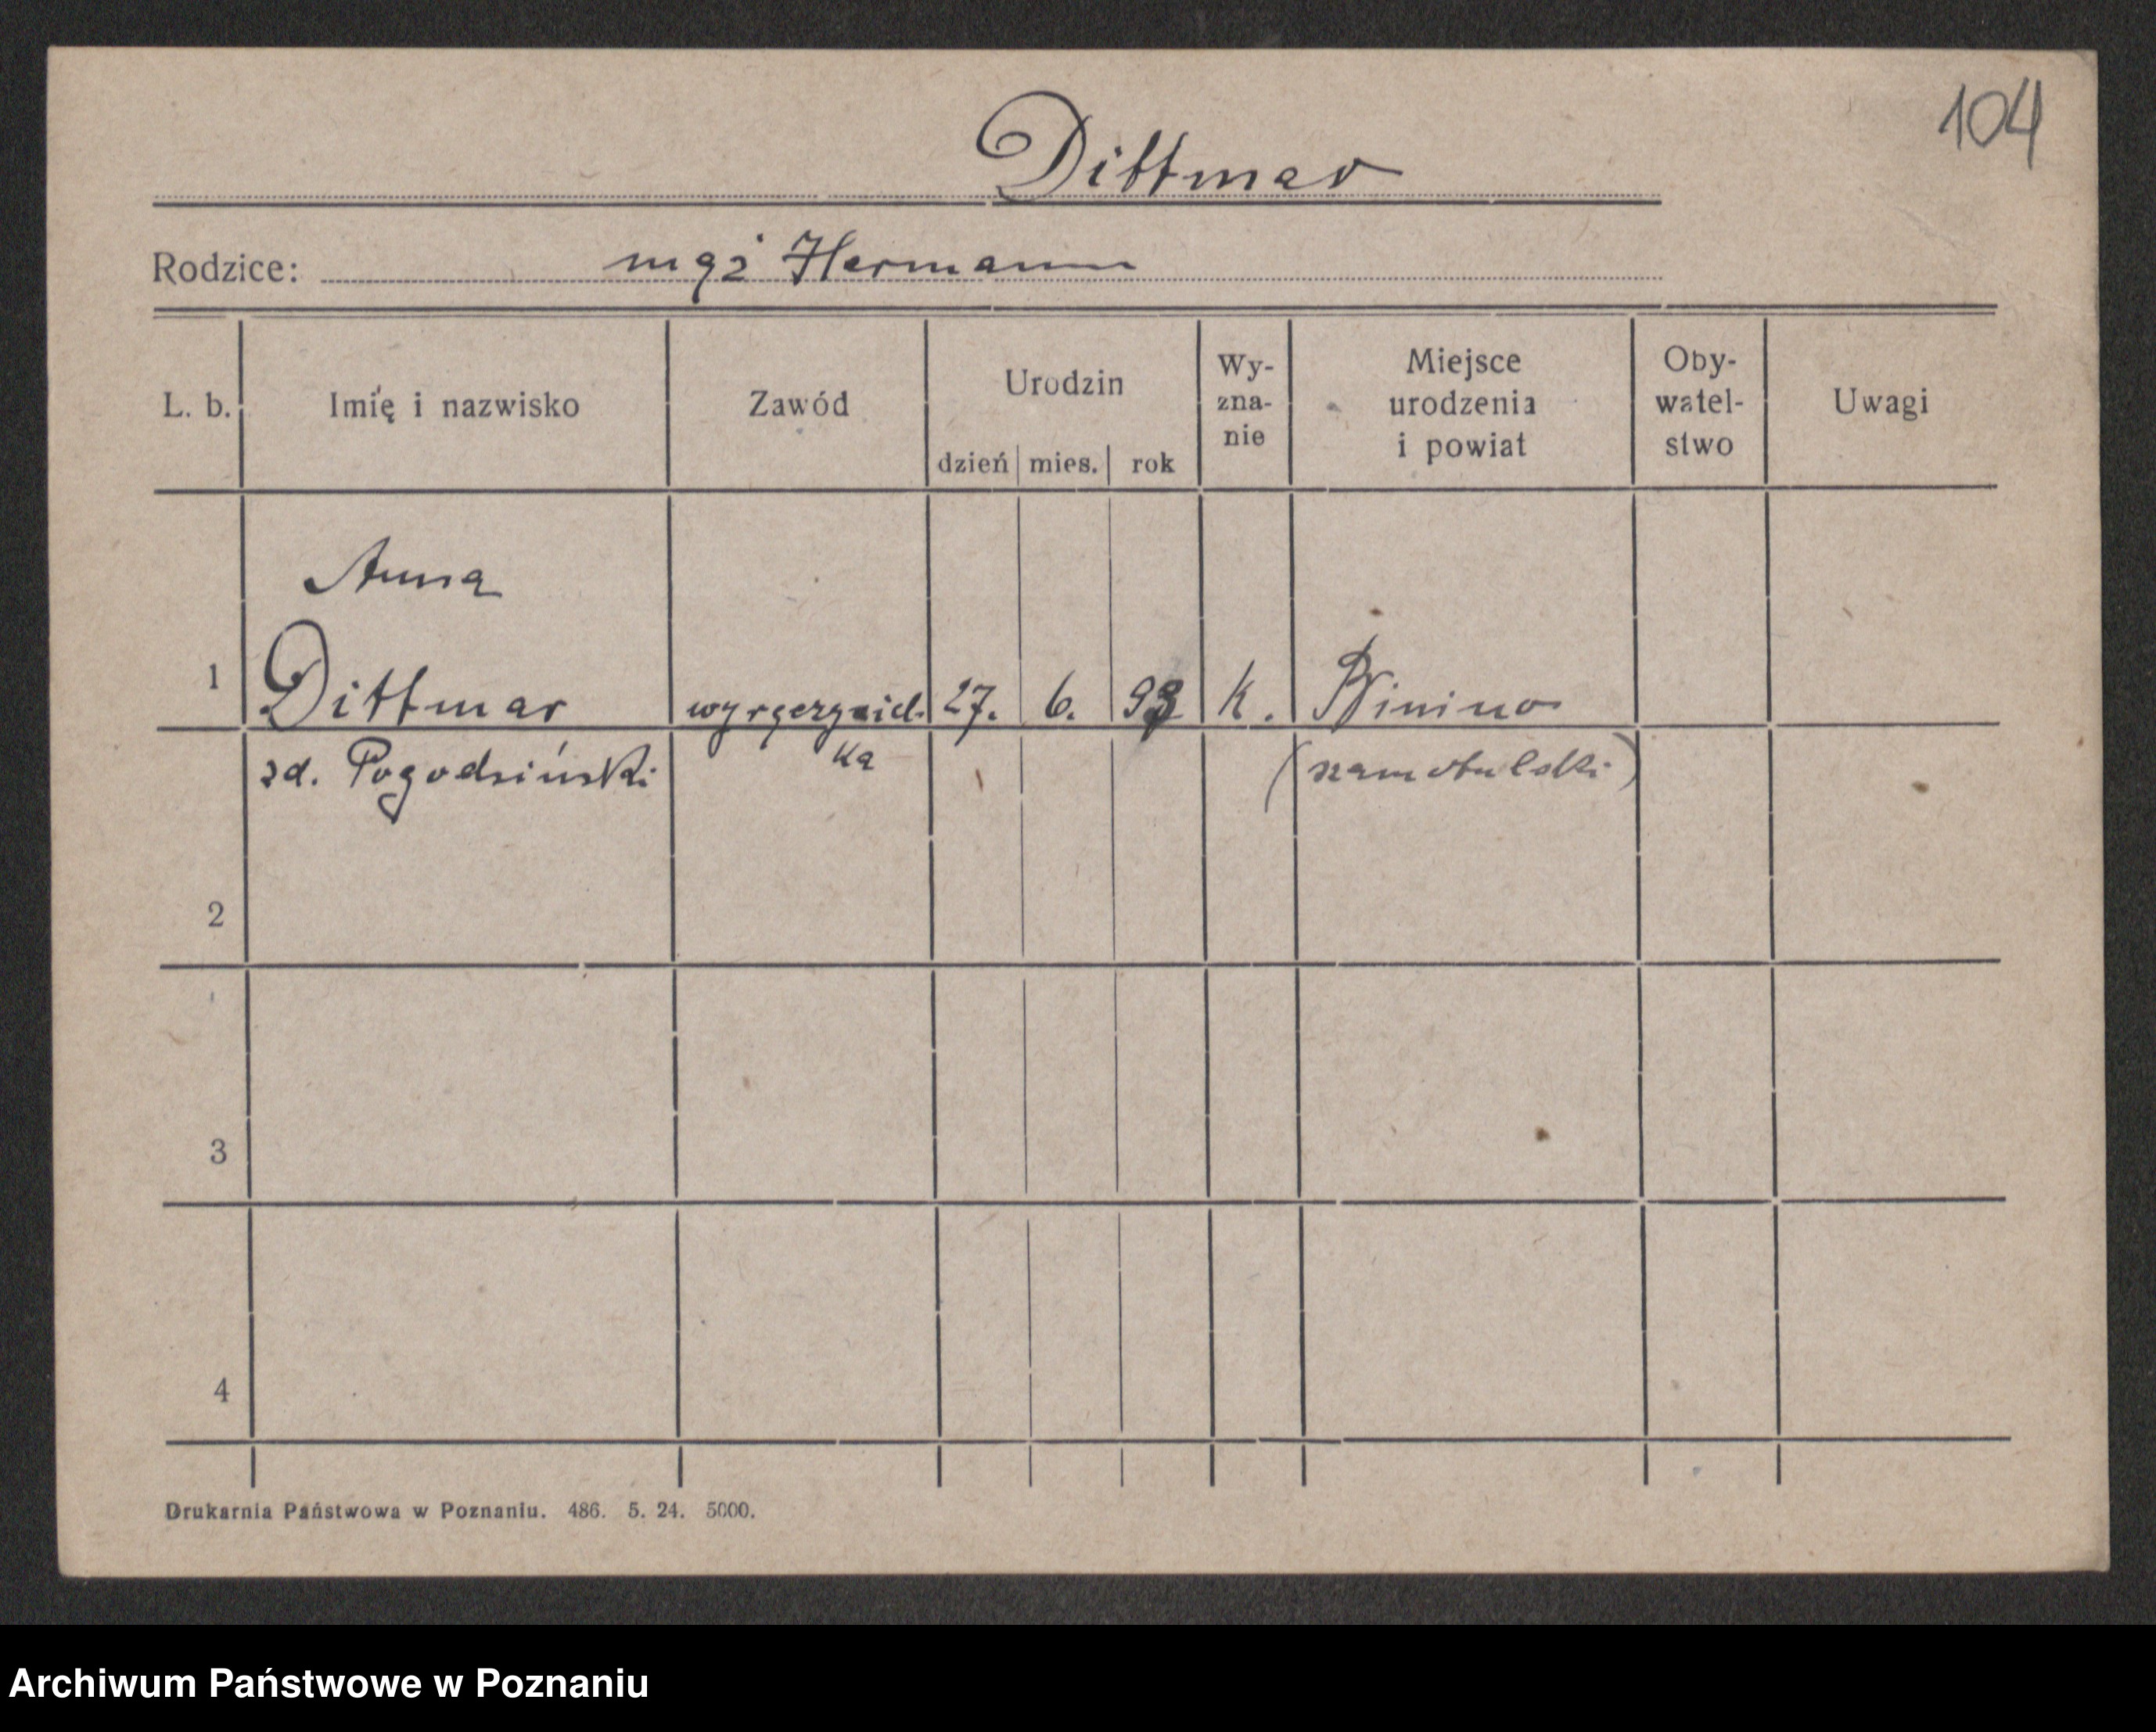 104
Dittmar
Rodzice: mąż Hermann
L. b. Imię i nazwisko Zawód Urodzin dzień mies. rok Wy-zna-nie Miejsce urodzenia i powiat Oby-watel-stwo Uwagi
Anna
1 Dittmar 27. 6. 93 k.
zd. Pogodziński ka (szamotulski)
2
3
4
Drukarnia Państwowa w Poznaniu. 486. 5. 24. 5000.
Archiwum Państwowe w Poznaniu